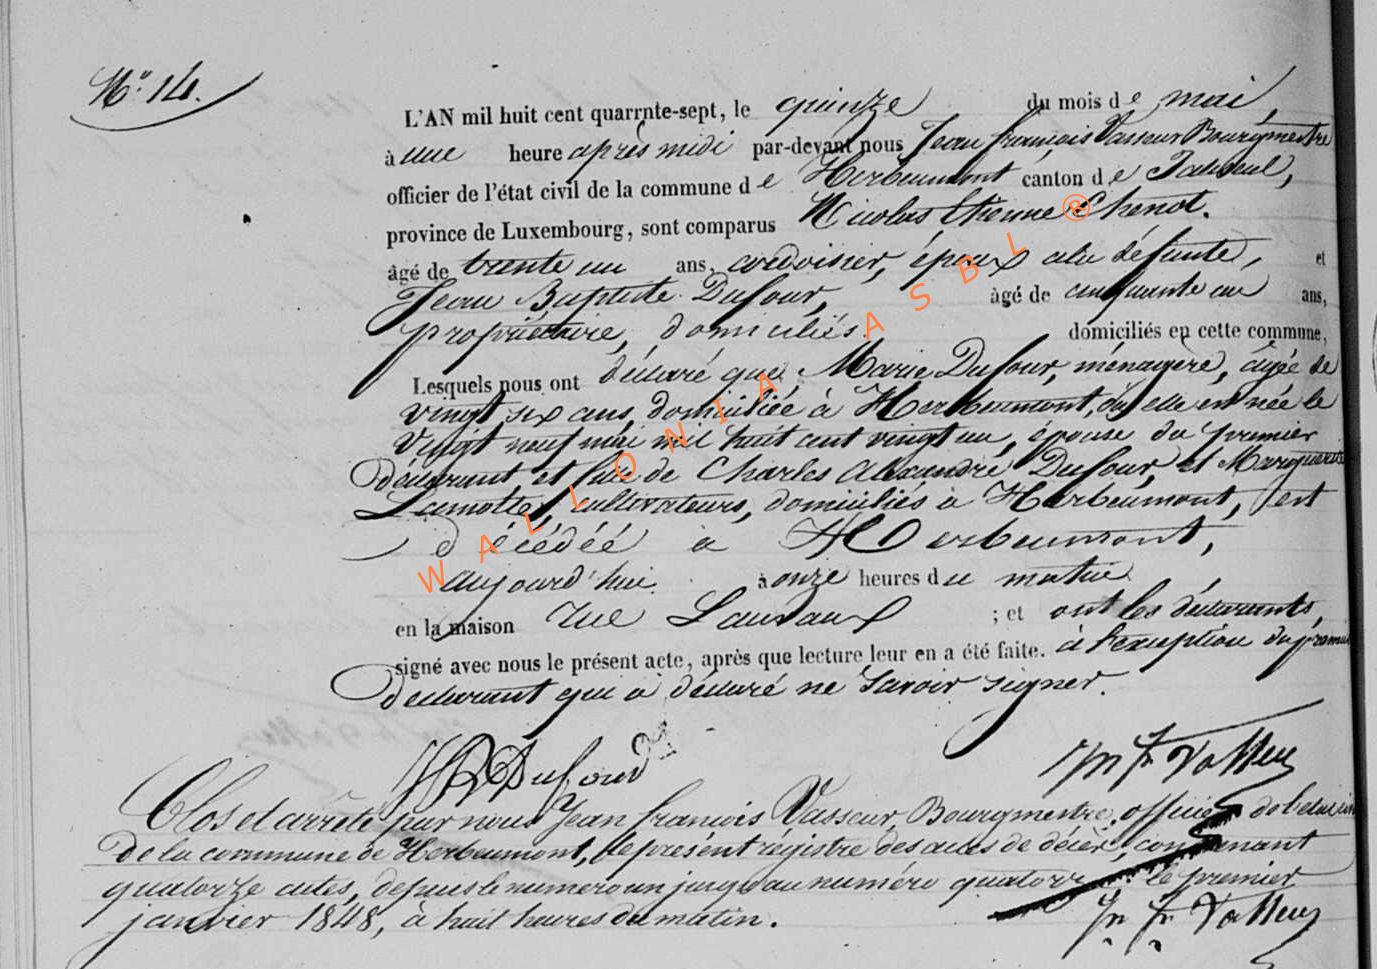 N° 14.
L'AN mil huit cent quarrnte-sept, le quinze du mois de mai,
à une heure après midi par-devant nous Jean françois Vasseur Bourgmestre
officier de l'état civil de la commune de Herbeumont canton de Paliseul,
province de Luxembourg, sont comparus Nicolas Etienne Chenot.
âgé de trente un ans, cordonnier, époux de la défunte, et
Jean Baptiste Dufour, âgé de cinquante un ans,
propriétaire, domiciliés domiciliés en cette commune,
Lesquels nous ont déclaré que Marie Dufour, ménagère, âgée de
vingt six ans, domiciliée à Herbeumont, où elle est née le
vingt neuf mai mil huit cent vingt un, épouse du premier
déclarant, et fille de Charles Alexandre Dufour, et Marguerite
Lamotte, cultivateurs, domiciliés à Herbeumont, est
décédée à Herbeumont,
aujourd'hui à onze heures du matin
en la maison rue ; et ont les déclarants,
signé avec nous le présent acte, après que lecture leur en a été faite. à l'exception du premier
déclarant qui a déclaré ne savoir signer.
JB Dufour Jn Fr Vasseur
Clos et arrêté par nous Jean françois Vasseur, Bourgmestre, officier de l'état civil
de la commune de Herbeumont, le présent régistre des actes de décès, contenant
quatorze actes, depuis le numero un jusqu'au numéro quatorze le premier
janvier 1848, à huit heures du matin.
Jn Fr Vasseur
WALLONIA ASBL ®